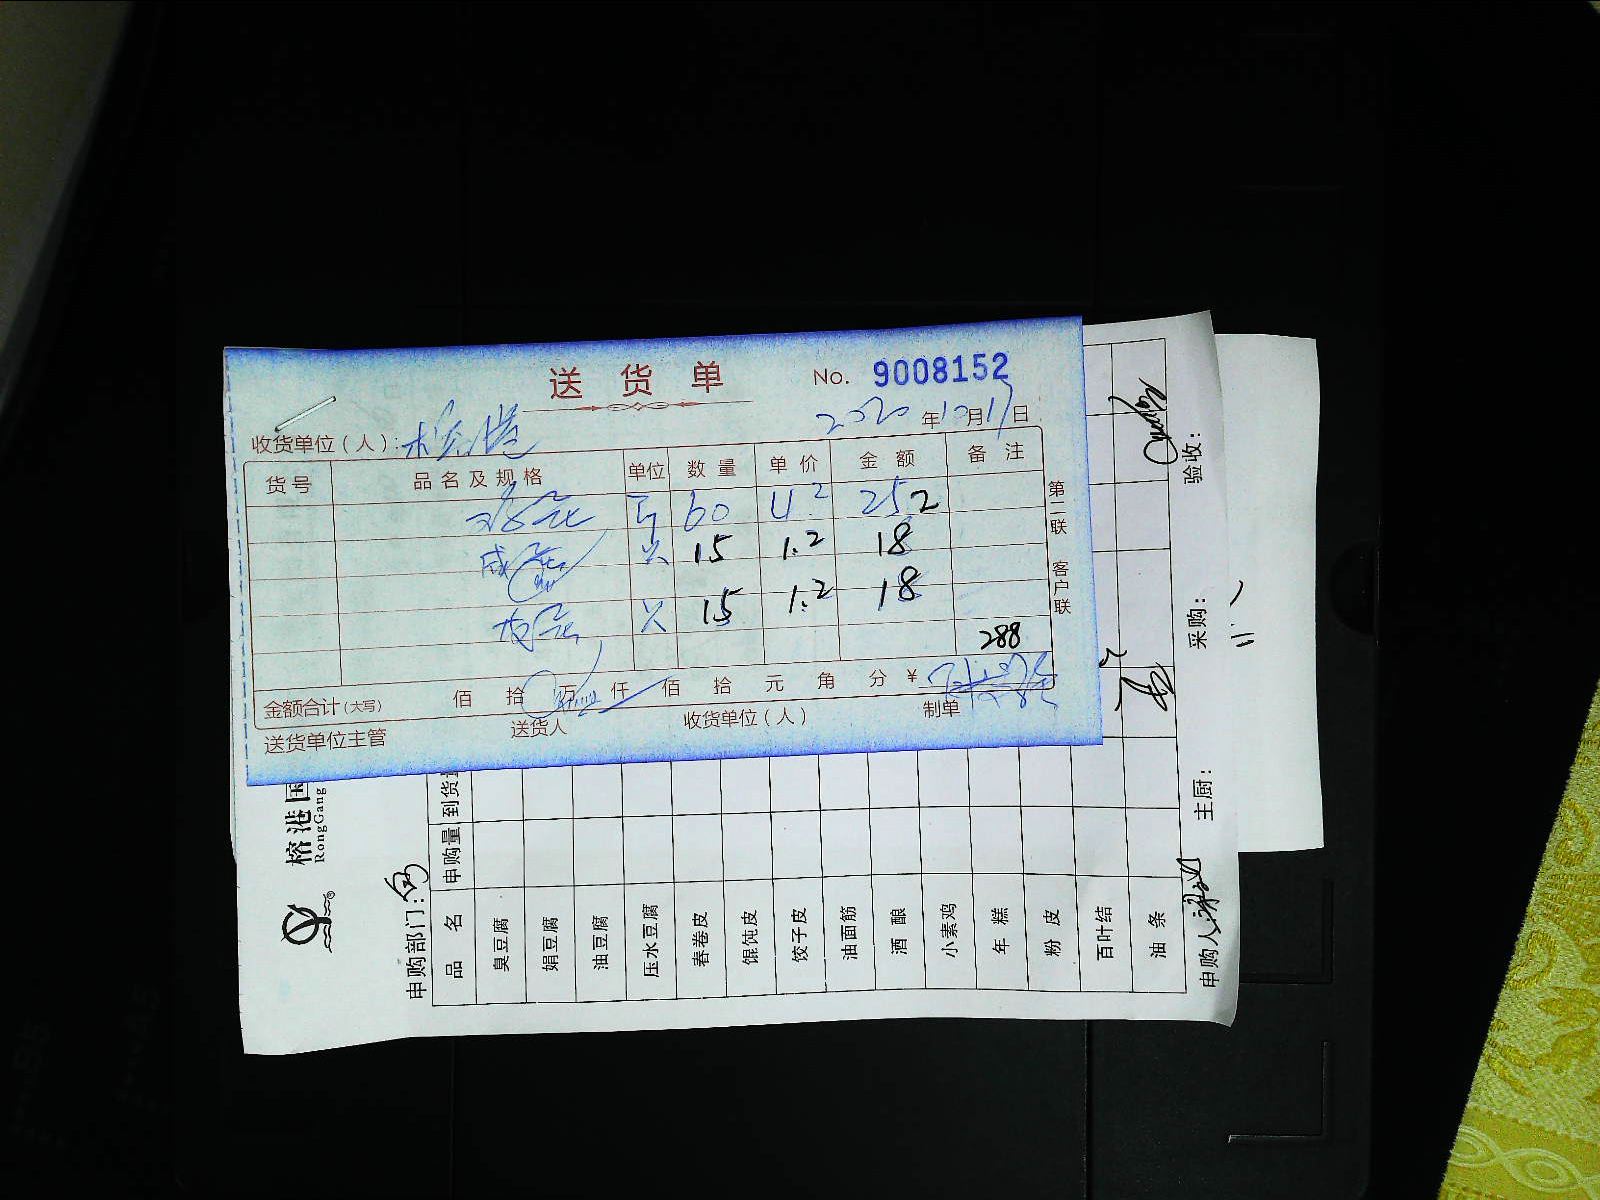 送 货 单
No. 9008152
2020年10月17日
收货单位（人）：榕港
货号 品名及规格 单位 数量 单价 金额 备注
60 4.2 252
只 15 1.2 18
只 15 1.2 18
288
金额合计（大写） 佰 拾 万 仟 佰 拾 元 角 分 ¥
送货单位主管 送货人 收货单位（人） 制单
第二联 客户联
榕港国
RongGang
申购部门：
品 名 申购量 到货量
臭豆腐
娟豆腐
油豆腐
压水豆腐
春卷皮
馄饨皮
饺子皮
油面筋
酒 酿
小素鸡
年 糕
粉 皮
百叶结
油 条
申购人： 主厨： 采购： 验收：